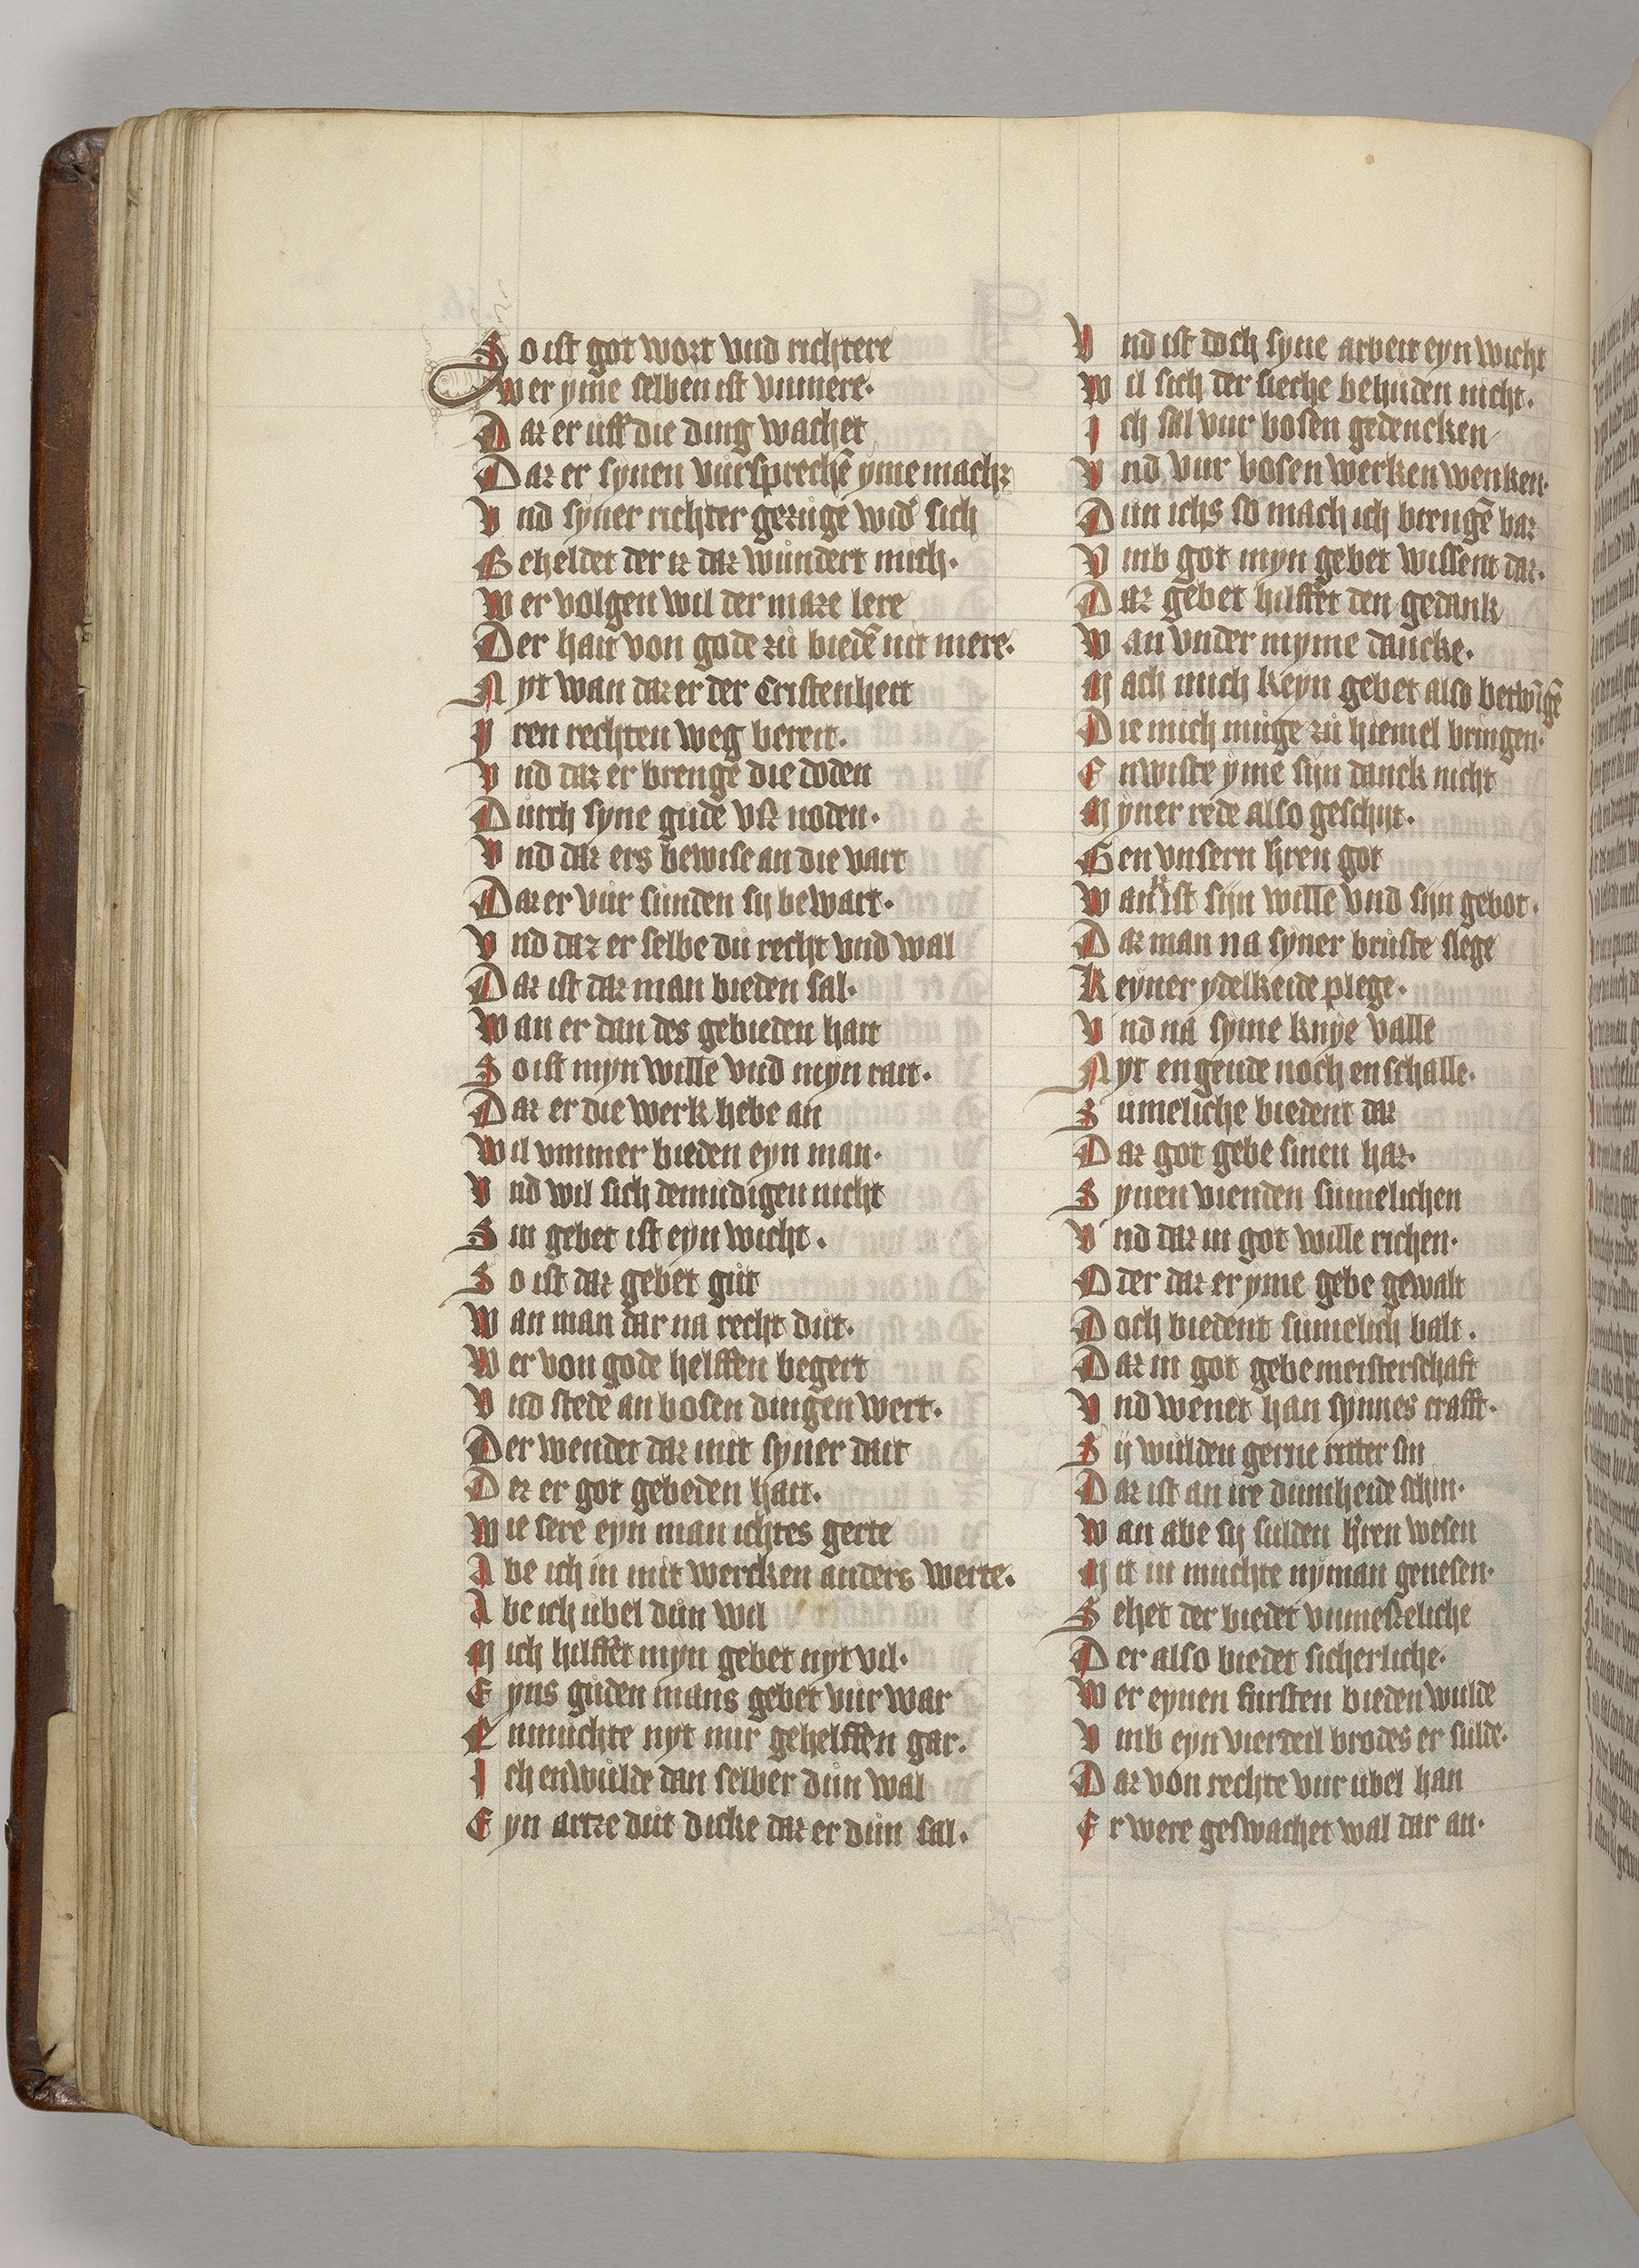 So ist got wort vnd richtere
Swer yme selben ist vnmere·
Daz er uff die ding wachet
Daz er synen vursprechē yme machz
Vnd syner richter gezuge wid' sich
Beheldet der iz daz wundert mich·
Wer volgen wil der maze lere
Der hait von gode zů biedē nit mere·
Nyt wan daz er der Cristenheit
Iren rechten weg bereit·
Vnd daz er brenge die doden
Durch syne gude vß noden·
Vnd daz ers bewise an die vart
Daz er vur sunden sy bewart·
Vnd daz er selbe du recht vnd wal
Daz ist daz man bieden sal·
Wan er dan des gebieden hait
So ist myn wille vnd myn rait·
Daz er die werk hebe an
Wil vmmer bieden eyn man·
Vnd wil sich demudigen nicht
Sin gebet ist eyn wicht·
So ist daz gebet gut
Wan man dar na recht dut·
Wer von gode helffen begert
Vnd stede an bosen dingen wert·
Der wendet daz mit syner dait
Dez er got gebeden hait·
Wie sere eyn man ichtes gerte
Abe ich in mit wercken anders werte·
Abe ich ubel dun wil
Mich hilffet myn gebet nyt vil·
Eyns guden mans gebet vur war
Enmuchte nyt mir gehelffen gar·
Ich enwulde dan selber dun wal
Eyn artze dut dicke daz er dun sal·
Vnd ist doch syne arbeit eyn wicht
Wil sich der sieche behuden nicht·
Ich sal vur bosen gedencken
Vnd vur bosen werken wenken·
Dun ichs so mach ich brengē baz
Vmb got myn gebet wissent daz·
Daz gebet hilffet den gedank
Wan vnder myme dancke·
Mach mich keyn gebet also betwīgē
Die mich muge zů hiemel bringen·
Enwiste yme sijn danck nicht
Myner rede also geschijt·
Gen vnsern hren got
Wan ist sijn wille vnd sijn gebot·
Daz man na syner bruste slege
Keyner ydelkeide plege·
Vnd na syme knye valle
Nyt engende noch enschalle·
Sumeliche biedent daz
Daz got gebe sinen haz·
Synen vienden sumelichen
Vnd daz in got wille richen·
Oder daz er yme gebe gewalt
Doch biedent sumelich balt·
Daz in got gebe meisterschaft
Vnd wenet han synnes crafft·
Sij wulden gerne ritter sin
Daz ist an ire dumheide schin·
Wan abe sy sulden hren wesen
Mit in muchte nyman genesen·
Sehet der biedet vnmeßeliche
Der also biedet sicherliche·
Wer eynen fursten bieden wulde
Vmb eyn vierteil brodes er sulde·
Daz von rechte vur ubel han
Er were geswachet wal dar an·